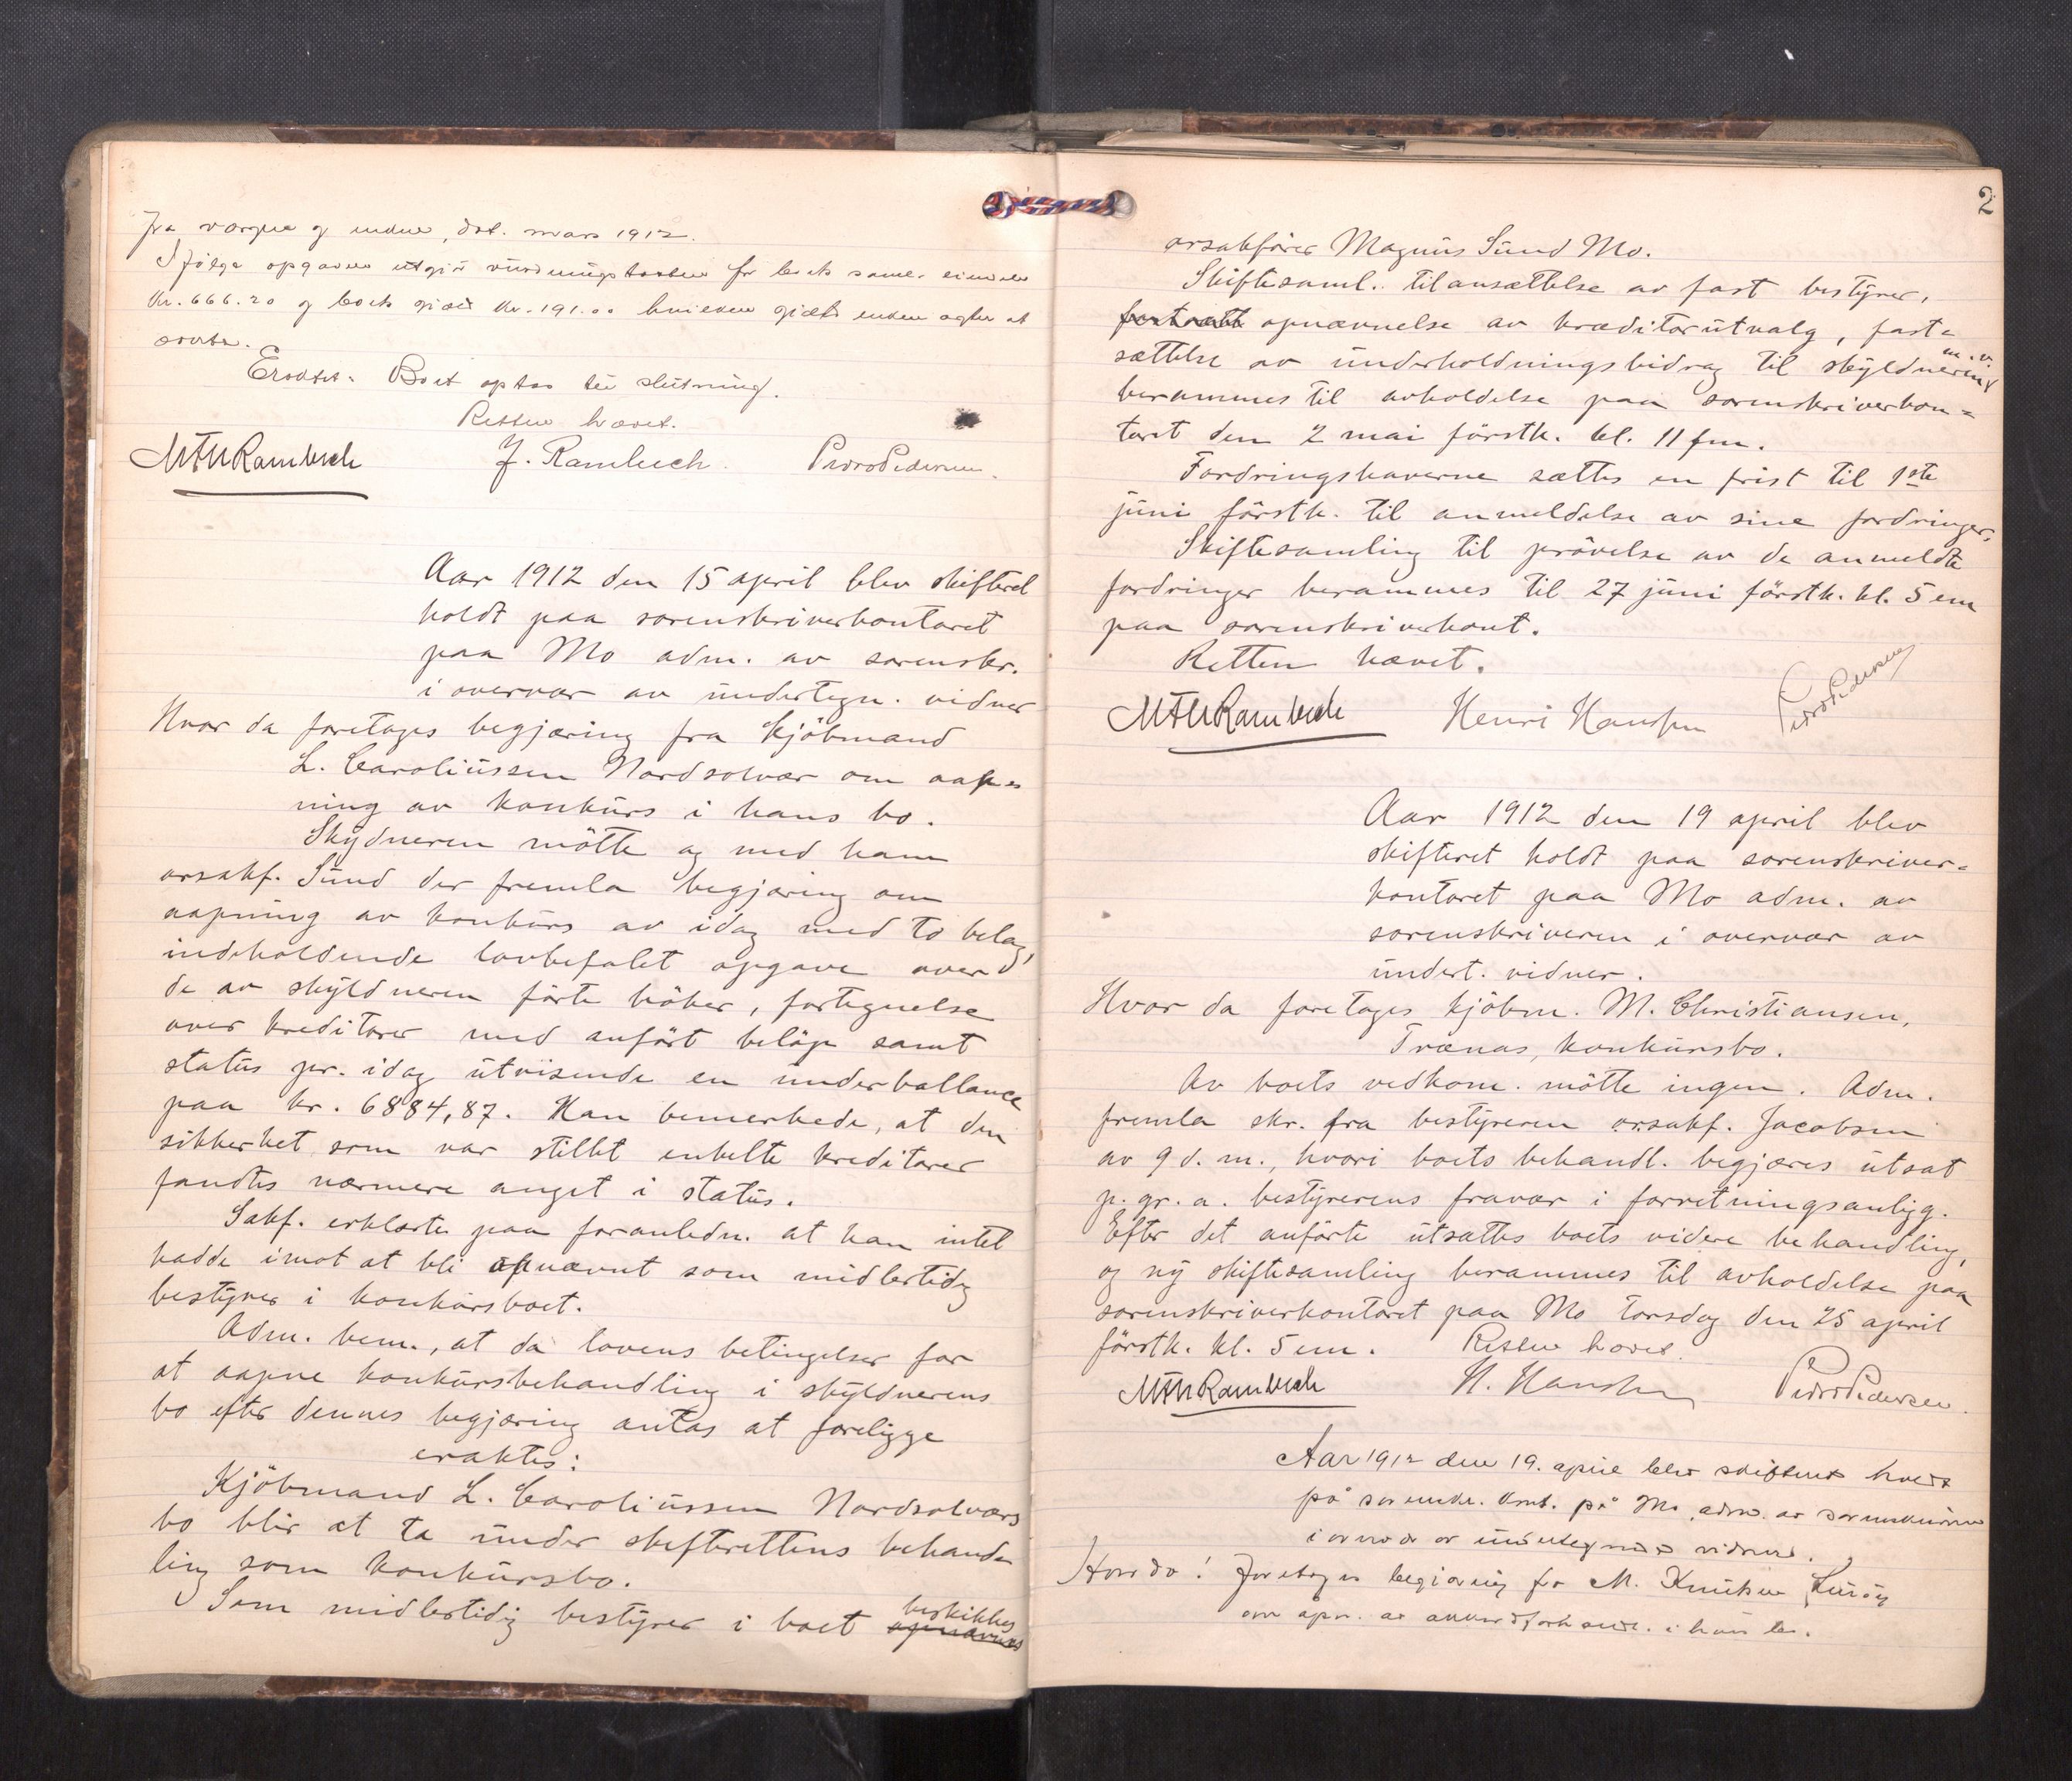 fra værgen og enken, dat. mars 1912.
Ifölge opgaven utgjör vurderingssummen for boets saml. eiendele
Kr. 666.20 og boets gjæld Kr. 191.00 hvilken gjæld enken agter at
overta.
Eraktet: Boet optas til slutning.
Retten hævet.
MTHRambech J. Rambech. PedroPedersen.
Aar 1912 den 15 april blev skifteret
holdt paa sorenskriverkontoret
paa Mo adm. av sorenskr.
i overvær av undertegn. vidner
Hvor da foretages begjæring fra kjöbmand
L. Caroliussen Nordsolvær om aap-
ning av konkurs i hans bo.
Skydneren mötte og med ham
orsakf. Sund der fremla begjæring om
aapning av konkurs av idag med to bilag,
indeholdende lovbefalet opgave over
de av skyldneren förte böker, fortegnelse
over kreditorer med anfört belöp samt
status pr. idag utvisende en underballance
paa kr. 6884,87. Han bemerkede, at den
sikkerhet som var stillet enkelte kreditorer
fandtes nærmere anget i status.
Sakf. erklærte paa foranledn. at han intet
hadde imot at bli opnævnt som midlertidig
bestyrer i konkursboet.
Adm. bem., at da lovens betingelser for
at aapne konkursbehandling i skyldnerens
bo efter dennes begjæring antas at foreligge
eraktes:
Kjöbmand L. Caroliussen Nordsolværs
bo blir at ta under skifterettens behand-
ling som konkursbo.
Som midlertidig bestyrer i boet opnævnes beskikkes
2
orsakförer Magnus Sund Mo.
Skiftesaml. til ansættelse av fast bestyrer,
fortsatt opnævnelse av kreditorutvalg, fast-
sættelse av underholdningsbidrag til skyldneren m.v.
berammes til avholdelse paa sorenskriverkon-
toret den 2 mai förstk. kl. 11 fm.
Fordringshaverne sættes en frist til 1ste
juni förstk. til anmeldelse av sine fordringer.
Skiftesamling til prövelse av de anmeldte
fordringer berammes til 27 juni förstk. kl. 5 em
paa sorenskriverkont.
Retten hævet.
MTHRambech Henri Hanssen PedroPedersen
Aar 1912 den 19 april blev
skifteret holdt paa sorenskriver-
kontoret paa Mo adm. av
sorenskriveren i overvær av
undert. vidner.
Hvor da foretages kjöbm. M. Christiansen,
Trænas, konkursbo.
Av boets vedkom. mötte ingen. Adm.
fremla skr. fra bestyreren orsakf. Jacobsen
av 9 d. m., hvori boets behandl. begjæres utsat
p. gr. a. bestyrerens fravær i forretningsanligg.
Efter det anförte utsættes boets videre behandling,
og ny skiftesamling berammes til avholdelse paa
sorenskriverkontoret paa Mo torsdag den 25 april
förstk. kl. 5 em. Retten hævet.
MTHRambech H. Hanssen PedroPedersen.
Aar 1912 den 19. april blev skifteret holdt
på sorenskr. kont. på Mo, adm. av sorenskriveren
i overvær av undertegnede vidner.
Hvorda! Foretages begjæring fra M. Knutsen Luröy
om åpn. av akkordforhandl. i hans bo.